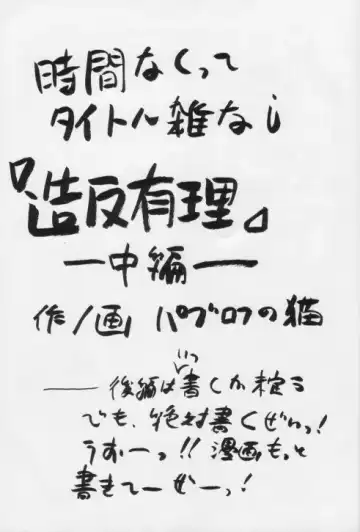 時間なくって
タイトル雑なし
『造反有理』
ー中編ー
作/画 パブロフの猫
いつ
── 後編は書くか未定
でも、絶対書くぜいっ!
うおーっ!! 漫画、もっと
書きてーぜーっ!